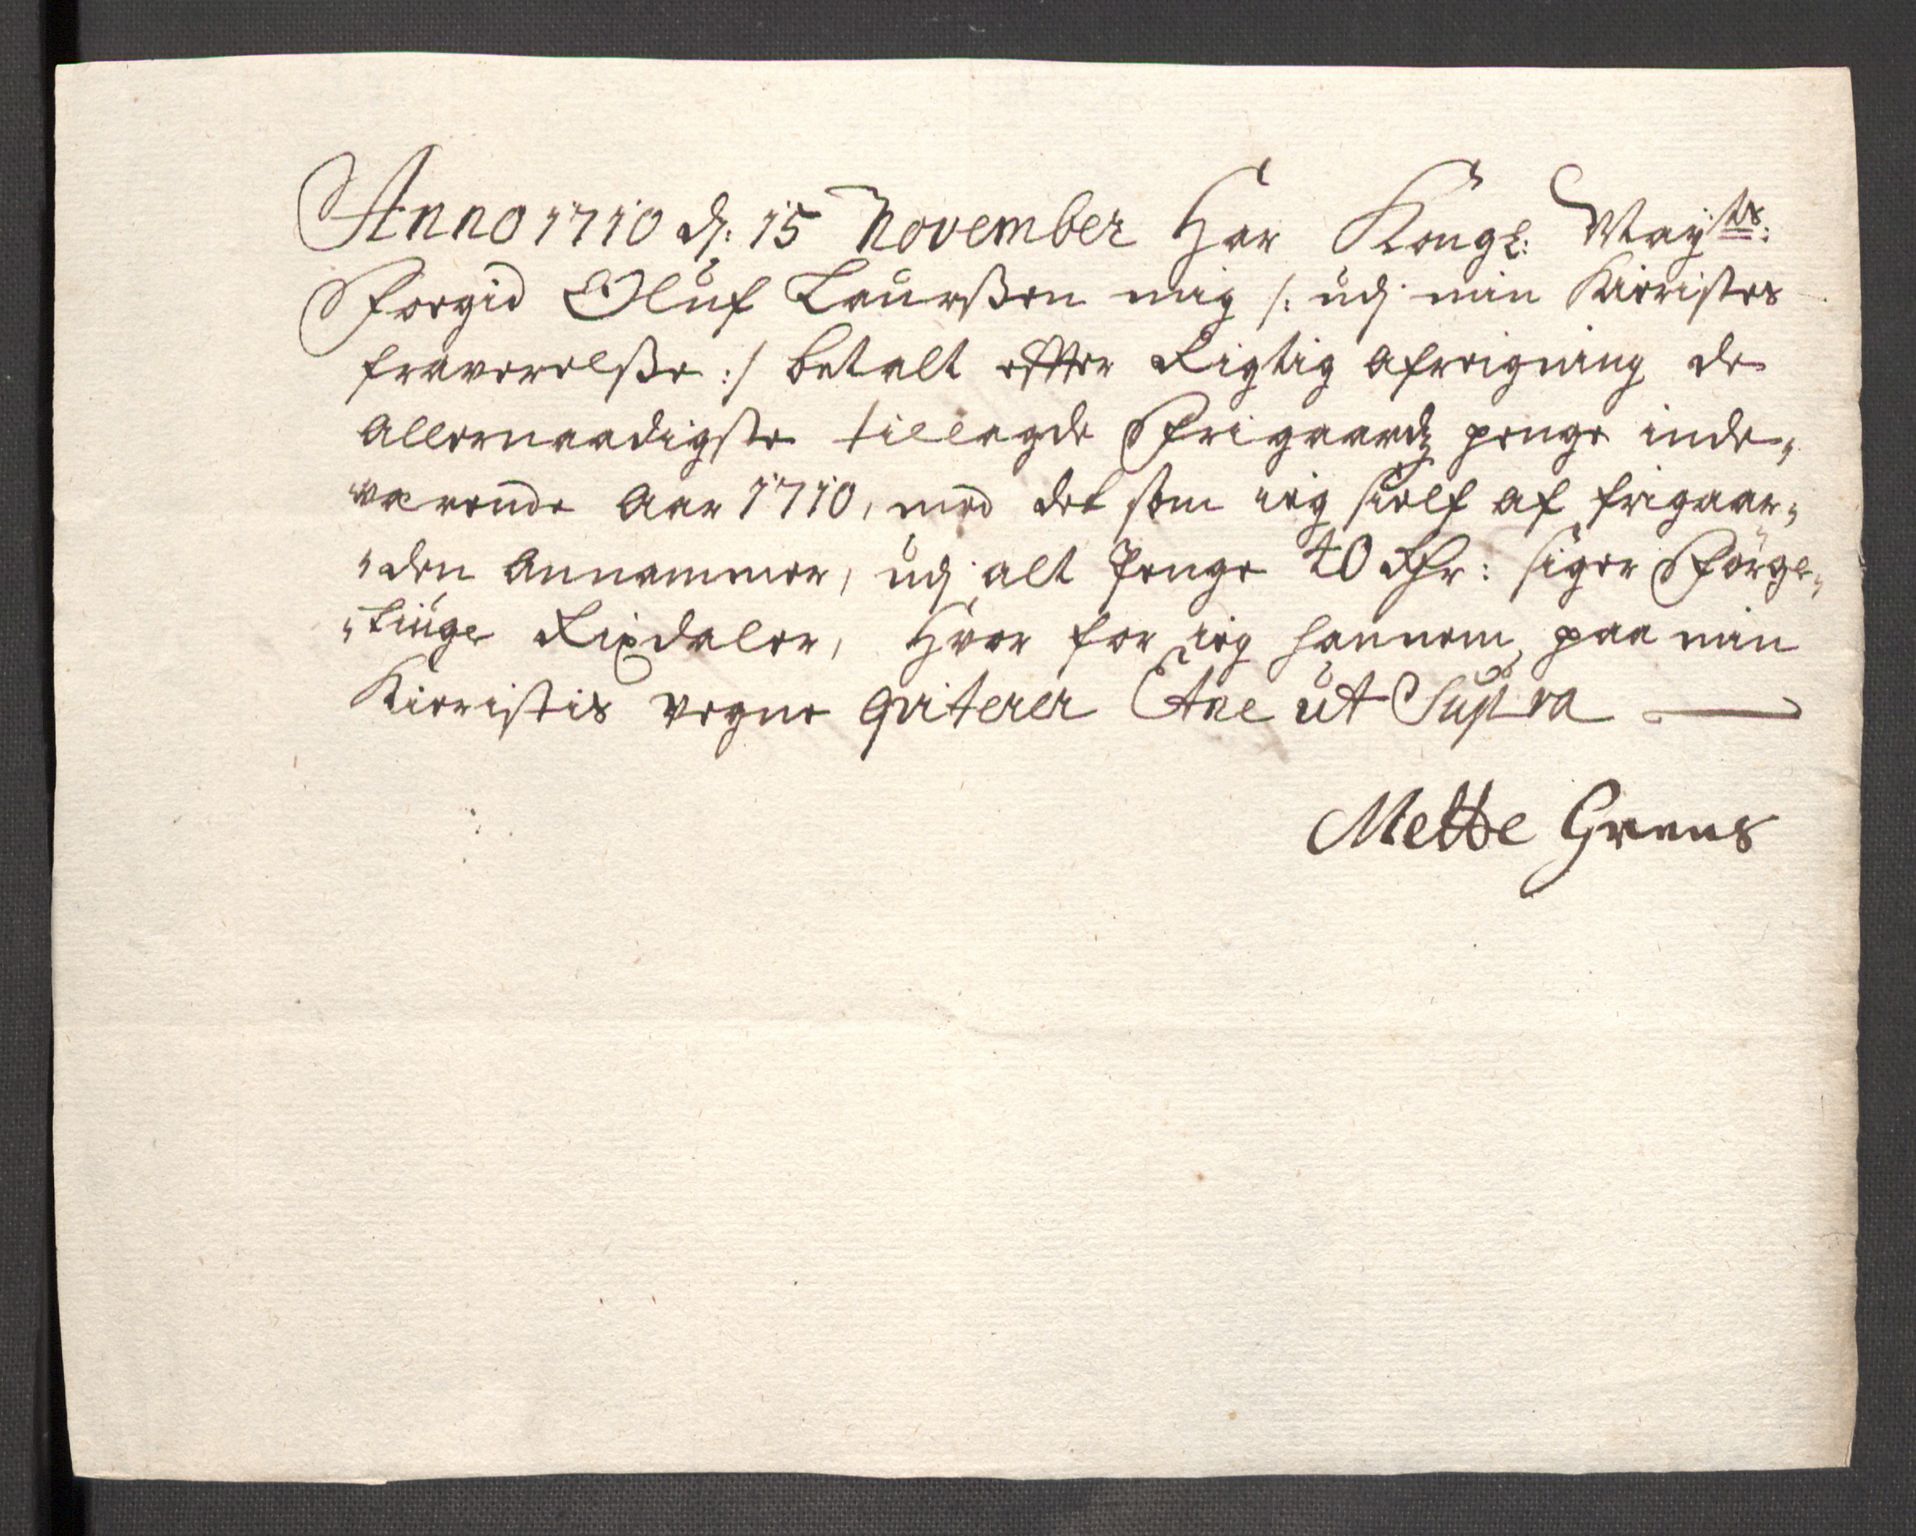 Anno 1710 d: 15 November Har Kongl: May.ts:
Foegid Oluf Laurßen mig /: udj min Kieristes
fraverelße :/ betalt effter Rigtig afreigning de
Allernaadigste tillagde Frigaardz penge inde„
værende Aar 1710, med det som ieg sielf af frigaar„
„den Annammer, udj alt Penge 40 Rdr: siger Förge„
„tiuge Rixdaler, Hvor for ieg hannem paa min
Kieristis vegne qviterer Etae ut Supra
Mette Grens